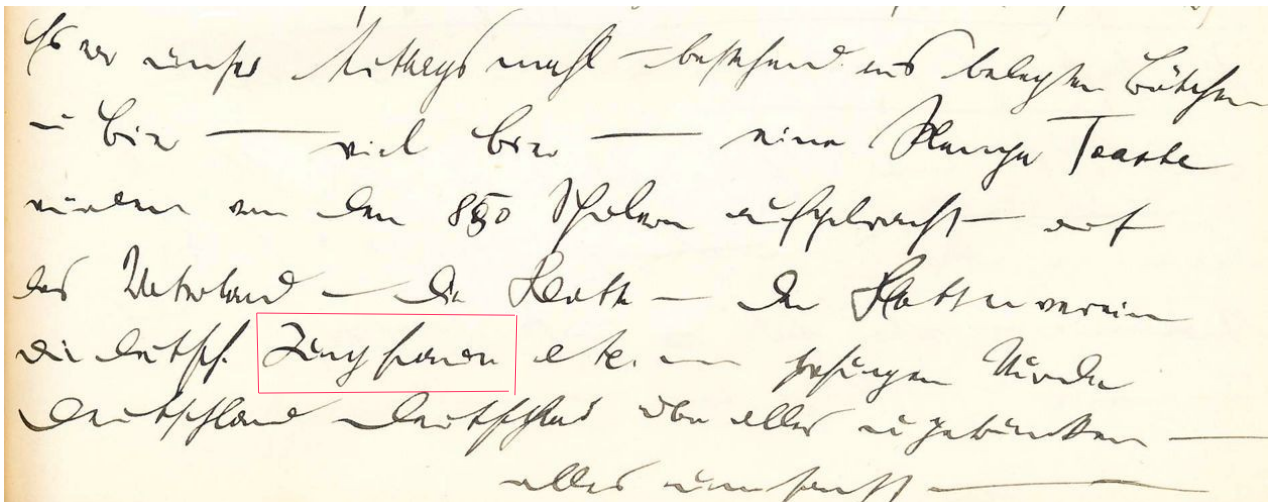 Es war unser Mittagsmahl – bestehend aus belegten Brötchen
u Bier — viel Bier — eine Menge Toaste
wurden von den 850 Schülern aufgebracht – auf
das Vaterland – die Flotte – den Flottenverein
die deutsch. Jungfrauen etc. – gesungen wurde
Deutschland Deutschland über alles u getrunken —
alles umsonst —